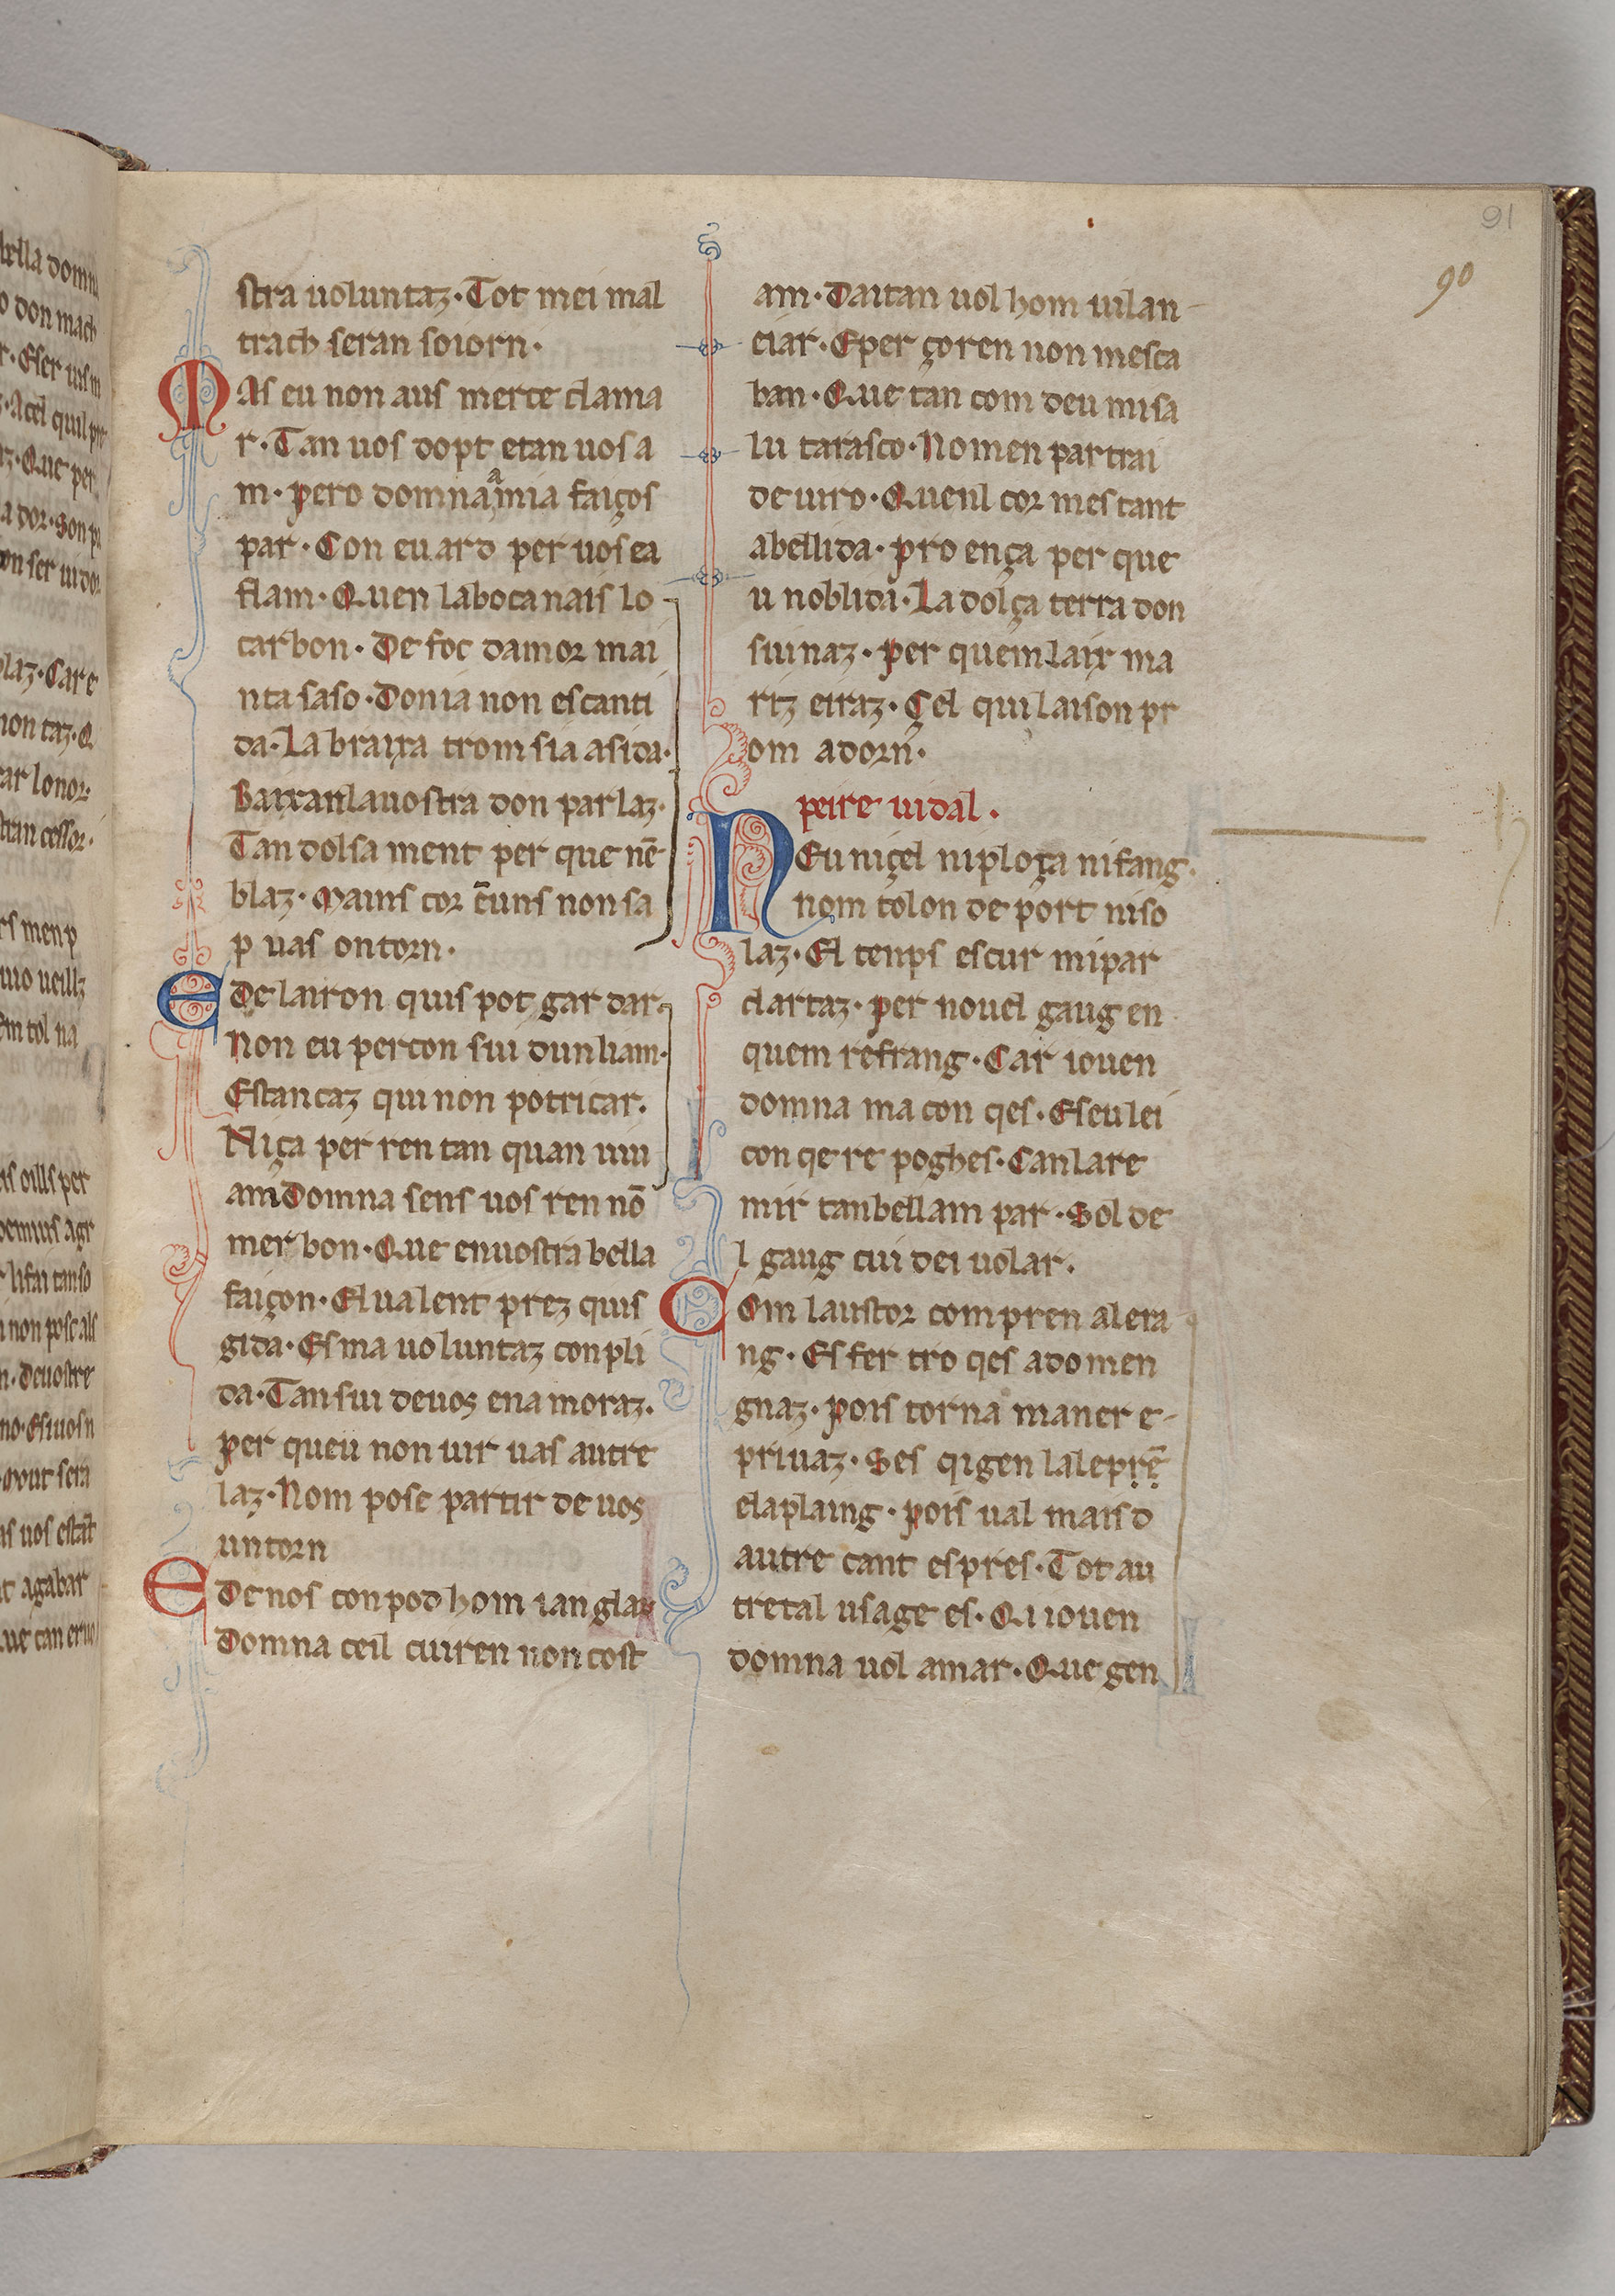 91
90
stra uoluntaz · Tot mei mal
trach seran soiorn ·
MAs eu non aus merce clama
r · Tan uos dopt etan uos a
m · pero domna a mia faiços
par · Con eu ard per uos ea
flam · Quen laboca nais lo
carbon · De foc damor mai
nta saso · Donia non escanti
da · La braixa trom sia asida ·
Baixan lauostra don parlaz ·
Tan dolsa ment per que nē
blaz · Mains cor c̄uns non sa
p uas on torn ·
E De lairon quis pot gar dar
Non eu percon sui dun liam ·
Estancaz qui non potricar .
Niça per ren tan quan uiu
am Domna sens uos ren nō
mer bon · Que enuostra bella
faiçon · El ualent prez quis
gida · Es ma uoluntaz conpli
da · Tan sui deuos ena moraz .
per queu non uir uas autre
laz · Nom posc partir de uos
un torn
E De nos conpod hom ian glar
Domna ceil cuiren non cost
am · Daitan uol hom uilan-
ciar · Eper çoren non mesca
ban · Que tan com deu misa
lu tarasco · Nomen partrai
de uiro · Quenl cor mestant
abellida · pro ença per que
u noblida · La dolça terra don
sui naz · per quem laix ma
ritz eiraz · Cel qui laison pr
om adorn ·
peire uidal .
NEu niçel niploça nifang ·
nom tolon de port niso
laz · El tenps escur mi par
clartaz · per nouel gaug en
quem refrang · Car iouen
domna ma con qes · Eseu lei
con qere poghes · Can lare
mir tanbellam par · Sol de
l gaug cui dei uolar .
COm laustor com pren al era
ng · Es fer tro qes adomen
gnaz · pois torna maner e-
priuaz · Ses qigen lalep rē
elaplaing · pois ual mais d
autre cant es pres · Tot au
tretal usage es · Qi iouen
domna uol amar · Que gen